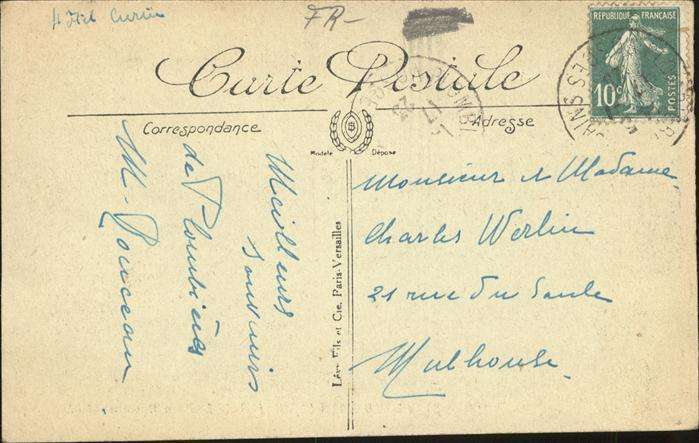 FR-
RÉPUBLIQUE FRANÇAISE
POSTES
10c
Carte Postale
Correspondance
Adresse
Modèle Déposé
Meilleurs
souvenirs
de Plombières
M.
Lévy Fils et Cie, Paris-Versailles
Monsieur & Madame
Charles Werlin
21 rue du Saule
Mulhouse.